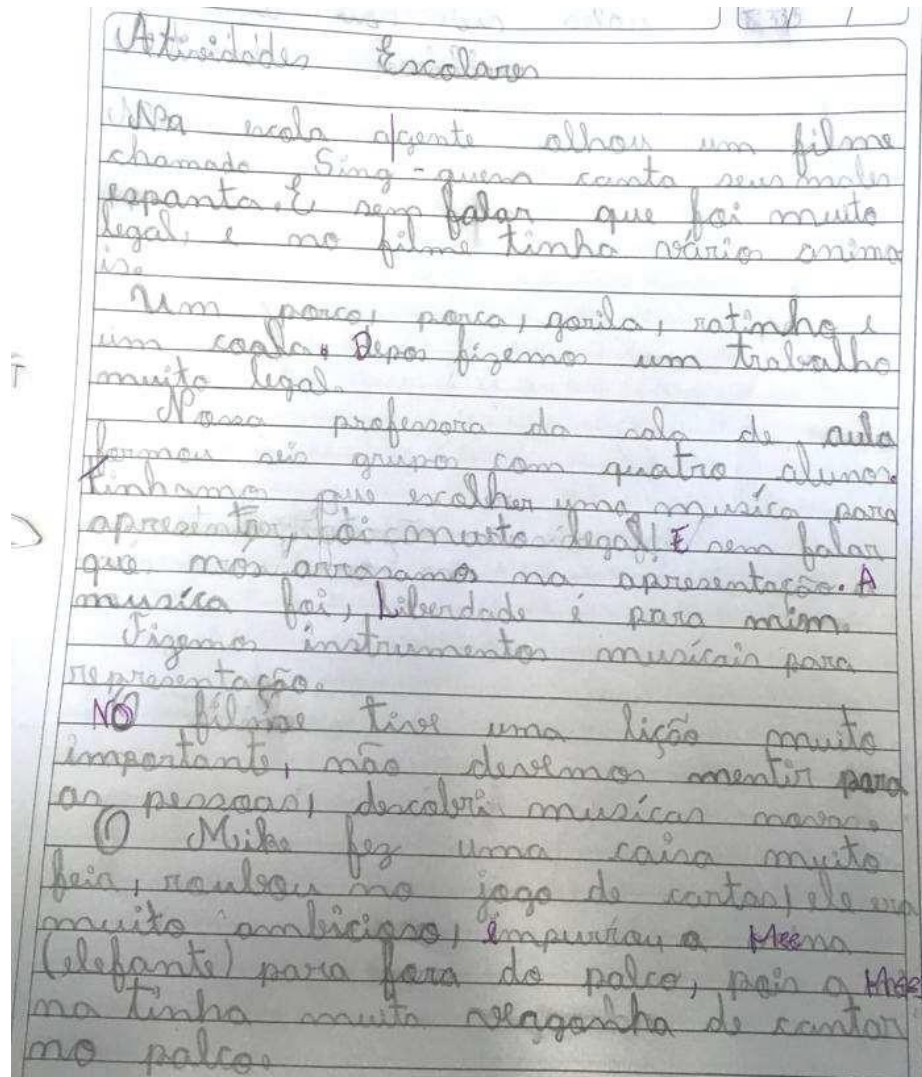 Atividades Escolares
Na escola a gente olhou um filme
chamado Sing - quem canta seus males
espanta. E sem falar que foi muito
legal, e no filme tinha vários anima
is.
Um porco, porca, gorila, ratinho e
um coala. Depos fizemos um trabalho
muito legal.
Nossa professora da sala de aula
formou seis grupos com quatro alunos.
tinhamos que escolher uma musíca para
apresentar, foi muito legal! E sem falar
que nos arrasamos na apresentação. A
musíca foi, Liberdade é para mim.
Fizemos instrumentos musícais para
representação.
NO filme tive uma lição muito
importante, não devemos mentir para
as pessoas, descobri musícas novas.
O Meike fez uma coisa muito
feia, roubou no jogo de cartas, ele era
muito ambicioso, empurrou a Meena
(elefante) para fora do palco, pois a Mee
na tinha muita vergonha de cantar
no palco.